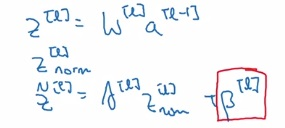 z^[l] = W^[l] a^[l-1]
z^[l]_norm
z̃^[l] = γ^[l] z^[l]_norm + β^[l]